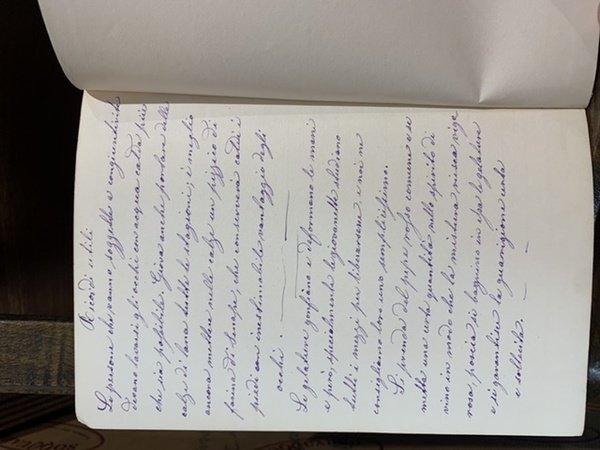 Ricordi utili
Le persone che vanno soggette a congiuntivite
devono lavarsi gli occhi con acqua calda più
che sia possibile. Giova anche portare delle
calze di lana tutte le stagioni, è meglio
ancora mettere nelle calze un pizzico di
farina di senape, che conservava caldi i
piedi con inestimabile vantaggio degli
occhi.
Le gelature gonfiano e deformano le mani
e però, specialmente le giovanette studiano
tutti i mezzi per liberarsene, e noi ne
consigliamo loro uno semplicissimo.
Si prenda del pepe rosso comune e se
metta una certa quantità nello spirito di
vino in modo che la mistura riesca vige
rosa, poscia si bagnino in spa le gelature
e si garantisce la guarigione certa
e sollecita.